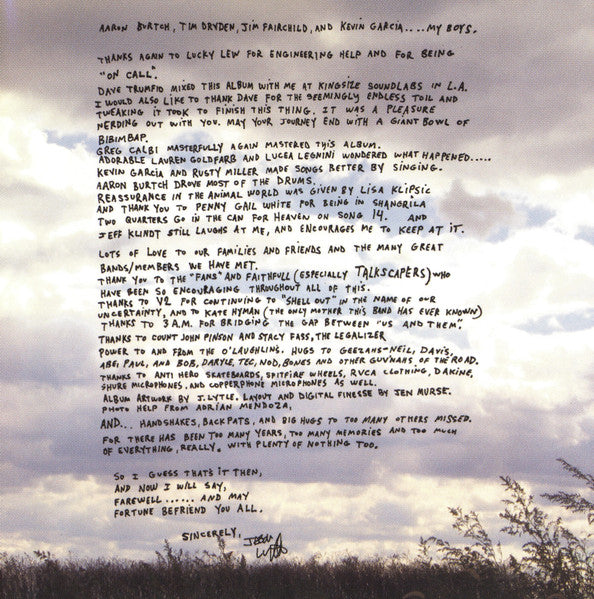 AARON BURTCH, TIM DRYDEN, JIM FAIRCHILD, AND KEVIN GARCIA....MY BOYS.
THANKS AGAIN TO LUCKY LEW FOR ENGINEERING HELP AND FOR BEING
"ON CALL".
DAVE TRUMFIO MIXED THIS ALBUM WITH ME AT KINGSIZE SOUNDLABS IN L.A.
I WOULD ALSO LIKE TO THANK DAVE FOR THE SEEMINGLY ENDLESS TOIL AND
TWEAKING IT TOOK TO FINISH THIS THING. IT WAS A PLEASURE
NERDING OUT WITH YOU. MAY YOUR JOURNEY END WITH A GIANT BOWL OF
BIBIMBAP.
GREG CALBI MASTERFULLY AGAIN MASTERED THIS ALBUM.
ADORABLE LAUREN GOLDFARB AND LUCEA LEGNINI WONDERED WHAT HAPPENED.....
KEVIN GARCIA AND RUSTY MILLER MADE SONGS BETTER BY SINGING.
AARON BURTCH DROVE MOST OF THE DRUMS.
REASSURANCE IN THE ANIMAL WORLD WAS GIVEN BY LISA KLIPSIC
AND THANK YOU TO PENNY GAIL WHITE FOR BEING IN SHANGRILA
TWO QUARTERS GO IN THE CAN FOR HEAVEN ON SONG 14. AND
JEFF KLINDT STILL LAUGHS AT ME, AND ENCOURAGES ME TO KEEP AT IT.
LOTS OF LOVE TO OUR FAMILIES AND FRIENDS AND THE MANY GREAT
BANDS/MEMBERS WE HAVE MET.
THANK YOU TO THE "FANS" AND FAITHFULL (ESPECIALLY TALKSCAPERS) WHO
HAVE BEEN SO ENCOURAGING THROUGHOUT ALL OF THIS.
THANKS TO V2 FOR CONTINUING TO "SHELL OUT" IN THE NAME OF OUR
UNCERTAINTY, AND TO KATE HYMAN (THE ONLY MOTHER THIS BAND HAS EVER KNOWN)
THANKS TO 3 A.M. FOR BRIDGING THE GAP BETWEEN "US AND THEM".
THANKS TO COUNT JOHN PINSON AND STACY FASS, THE LEGALIZER
POWER TO AND FROM THE O'LAUGHLINS. HUGS TO GEEZAHS-NEIL, DAVIS,
ABE, PAUL, AND BOB, DARYLE, TEC, NOD, BONES AND OTHER GUVNAHS OF THE ROAD.
THANKS TO ANTI HERO SKATEBOARDS, SPITFIRE WHEELS, RVCA CLOTHING, DAKINE,
SHURE MICROPHONES, AND COPPERPHONE MICROPHONES AS WELL.
ALBUM ARTWORK BY J. LYTLE. LAYOUT AND DIGITAL FINESSE BY JEN MURSE.
PHOTO HELP FROM ADRIAN MENDOZA,
AND... HANDSHAKES, BACKPATS, AND BIG HUGS TO TOO MANY OTHERS MISSED.
FOR THERE HAS BEEN TOO MANY YEARS, TOO MANY MEMORIES AND TOO MUCH
OF EVERYTHING, REALLY. WITH PLENTY OF NOTHING TOO.
SO I GUESS THAT'S IT THEN,
AND NOW I WILL SAY,
FAREWELL...... AND MAY
FORTUNE BEFRIEND YOU ALL.
SINCERELY,